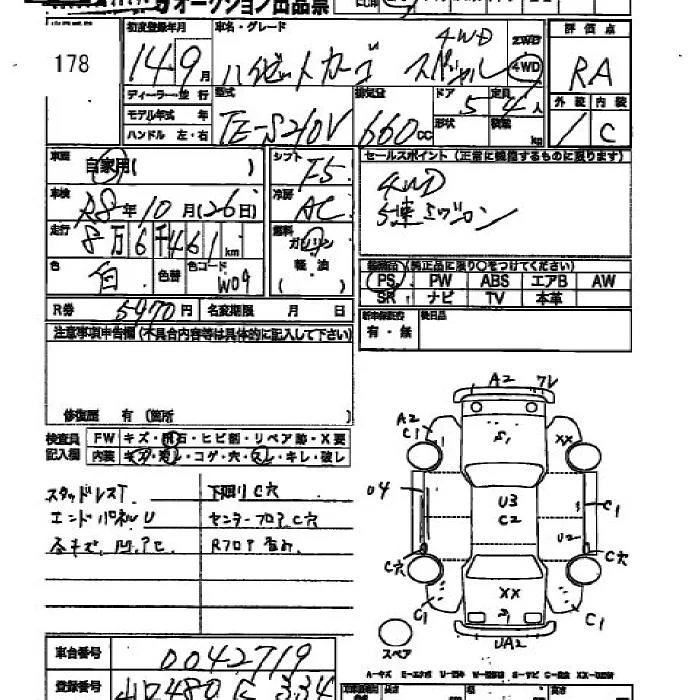 オークション出品票
178
初度登録年月 車名・グレード 評価点
14年9月 ハイゼットカーゴ スペシャル 4WD 2WD 4WD RA
ディーラー・並行 型式 排気量 ドア 定員 外装 内装
モデル年式 年 TE-S210V 660cc 形状 5 4人 積載 kg 1 C
ハンドル 左・右
車歴 自家用( ) シフト F5 セールスポイント(正常に機能するものに限ります)
車検 R8年10月(26日) 冷房 AC 4WD
走行 8万6千461km 燃料 ガソリン 5速ミッション
色 白 色替 色コード W09 軽・油 ( )
装備品(純正品に限り○をつけてください)
PS PW ABS エアB AW
SR ナビ TV 本革
R券 5970円 名変期限 月 日
新車保証書 有・無 後日品
注意事項申告欄(不具合内容等は具体的に記入して下さい)
修復歴 有(箇所 )
検査員 FW キズ・飛石・ヒビ割・リペア跡・X要
記入欄 内装 キズ・汚レ・コゲ・穴・スレ・キレ・破レ
スタッドレスT. 下回りC穴
エンドパネルU センターフロアC穴
各キズ、凹、アセ Rフロア歪み
A2
A2
C1
S1
XX
U4
U3
C2
C1
U2
C穴
C穴
XX
C1
C1
UA2
スペア
車台番号 0042719
登録番号 480 334